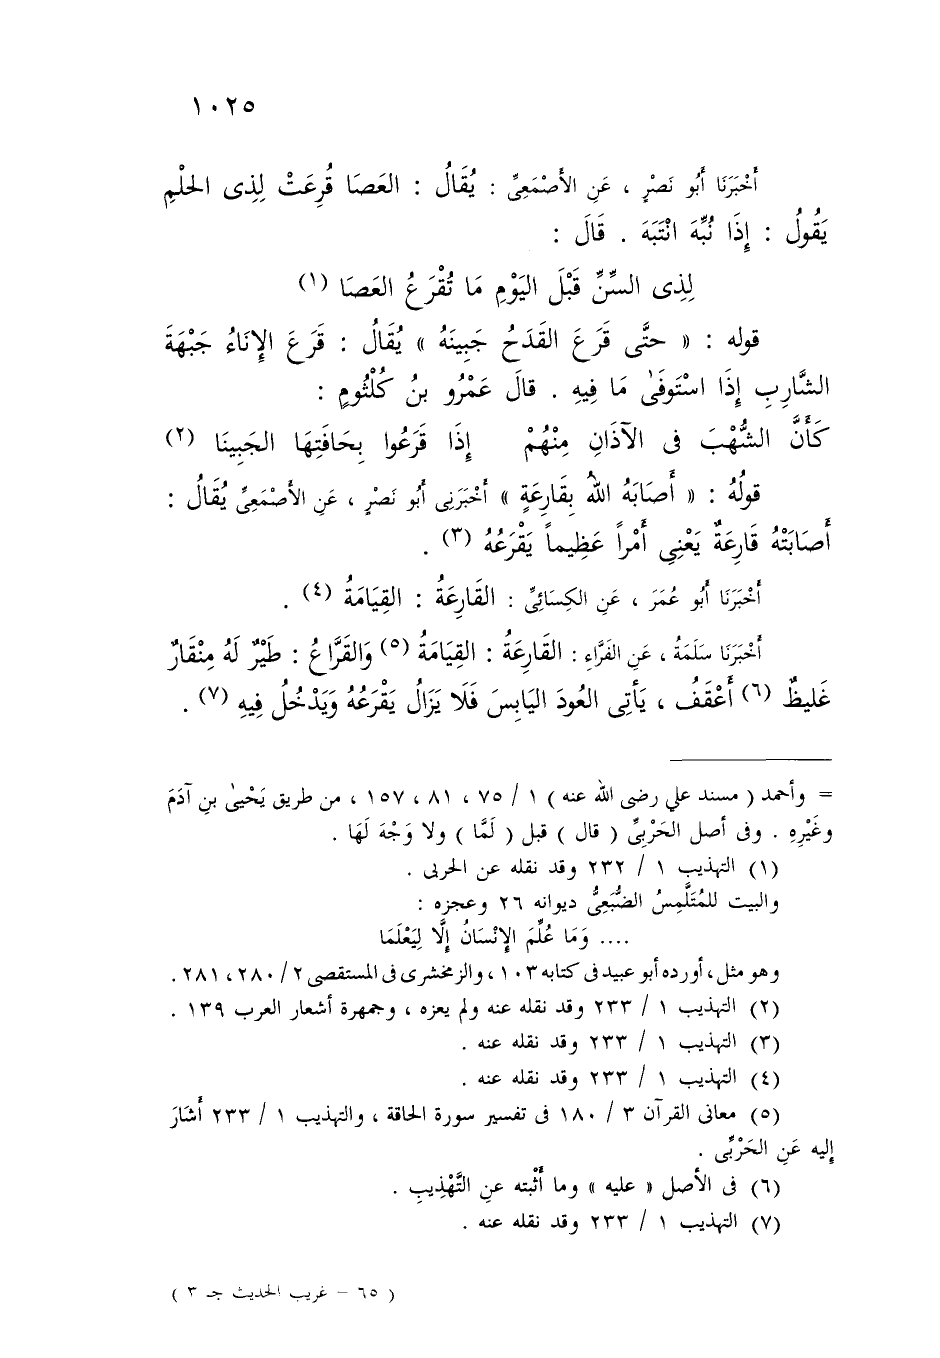 ١٠٢٥
أَخْبَرَنَا أَبُو نَصْرٍ ، عَنِ الأَصْمَعِىِّ : يُقَالُ : العَصَا قُرِعَتْ لِذِى الحلْمِ
يَقُولُ : إِذَا نُبِّهَ انْتَبَهَ . قَالَ :
لِذِى السِّنِّ قَبْلَ اليَوْمِ مَا تُقْرَعُ العَصَا (١)
قوله : « حتَّى قَرَعَ القَدَحُ جَبِينَهُ » يُقَالُ : قَرَعَ الإِنَاءُ جَبْهَةَ
الشَّارِبِ إِذَا اسْتَوفَىٰ مَا فِيهِ . قالَ عَمْرُو بنُ كُلْثُومٍ :
كَأَنَّ الشُّهْبَ فى الآذَانِ مِنْهُمْ إِذَا قَرَعُوا بِحَافَتِهَا الجَبِينَا (٢)
قولُهُ : « أَصَابَهُ اللهُ بِقَارِعَةٍ » أَخْبَرَنِى أَبُو نَصْرٍ ، عَنِ الأَصْمَعِىِّ يُقَالُ :
أَصَابَتْهُ قَارِعَةٌ يَعْنِي أَمْراً عَظِيماً يَقْرَعُهُ (٣) .
أَخْبَرَنَا أَبُو عُمَرَ ، عَنِ الكِسَائِىِّ : القَارِعَةُ : القِيَامَةُ (٤) .
أَخْبَرَنَا سَلَمَةُ ، عَنِ الفَرَّاءِ : القَارِعَةُ : القِيَامَةُ (٥) وَالقَرَّاعُ : طَيْرٌ لَهُ مِنْقَارٌ
غَلِيظٌ (٦) أَعْقَفُ ، يَأتِى العُودَ اليَابِسَ فَلَا يَزَالُ يَقْرَعُهُ وَيَدْخُلُ فِيهِ (٧) .
= وأحمد ( مسند علي رضى الله عنه ) ١ / ٧٥ ، ٨١ ، ١٥٧ ، من طريق يَحْيىٰ بنِ آدَمَ
وغَيْرِهِ . وفى أصل الحَرْبِىِّ ( قال ) قبل ( لَمَّا ) ولا وَجْهَ لَهَا .
(١) التهذيب ١ / ٢٣٢ وقد نقله عن الحربى .
والبيت للمُتَلَّمِسُ الضُّبَعِىُّ ديوانه ٢٦ وعجزه :
.... وَمَا عُلِّمَ الإِنْسَانُ إِلَّا لِيَعْلَمَا
وهو مثل ، أورده أبو عبيد فى كتابه ١٠٣ ، والزمخشرى فى المستقصى ٢ / ٢٨٠ ، ٢٨١ .
(٢) التهذيب ١ / ٢٣٣ وقد نقله عنه ولم يعزه ، وجمهرة أشعار العرب ١٣٩ .
(٣) التهذيب ١ / ٢٣٣ وقد نقله عنه .
(٤) التهذيب ١ / ٢٣٣ وقد نقله عنه .
(٥) معانى القرآن ٣ / ١٨٠ فى تفسير سورة الحاقة ، والتهذيب ١ / ٢٣٣ أَشَارَ
إِليه عَنِ الحَرْبِّى .
(٦) فى الأصل « عليه » وما أَثْبته عنِ التَّهْذِيبِ .
(٧) التهذيب ١ / ٢٣٣ وقد نقله عنه .
( ٦٥ – غريب الحديث جـ ٣ )